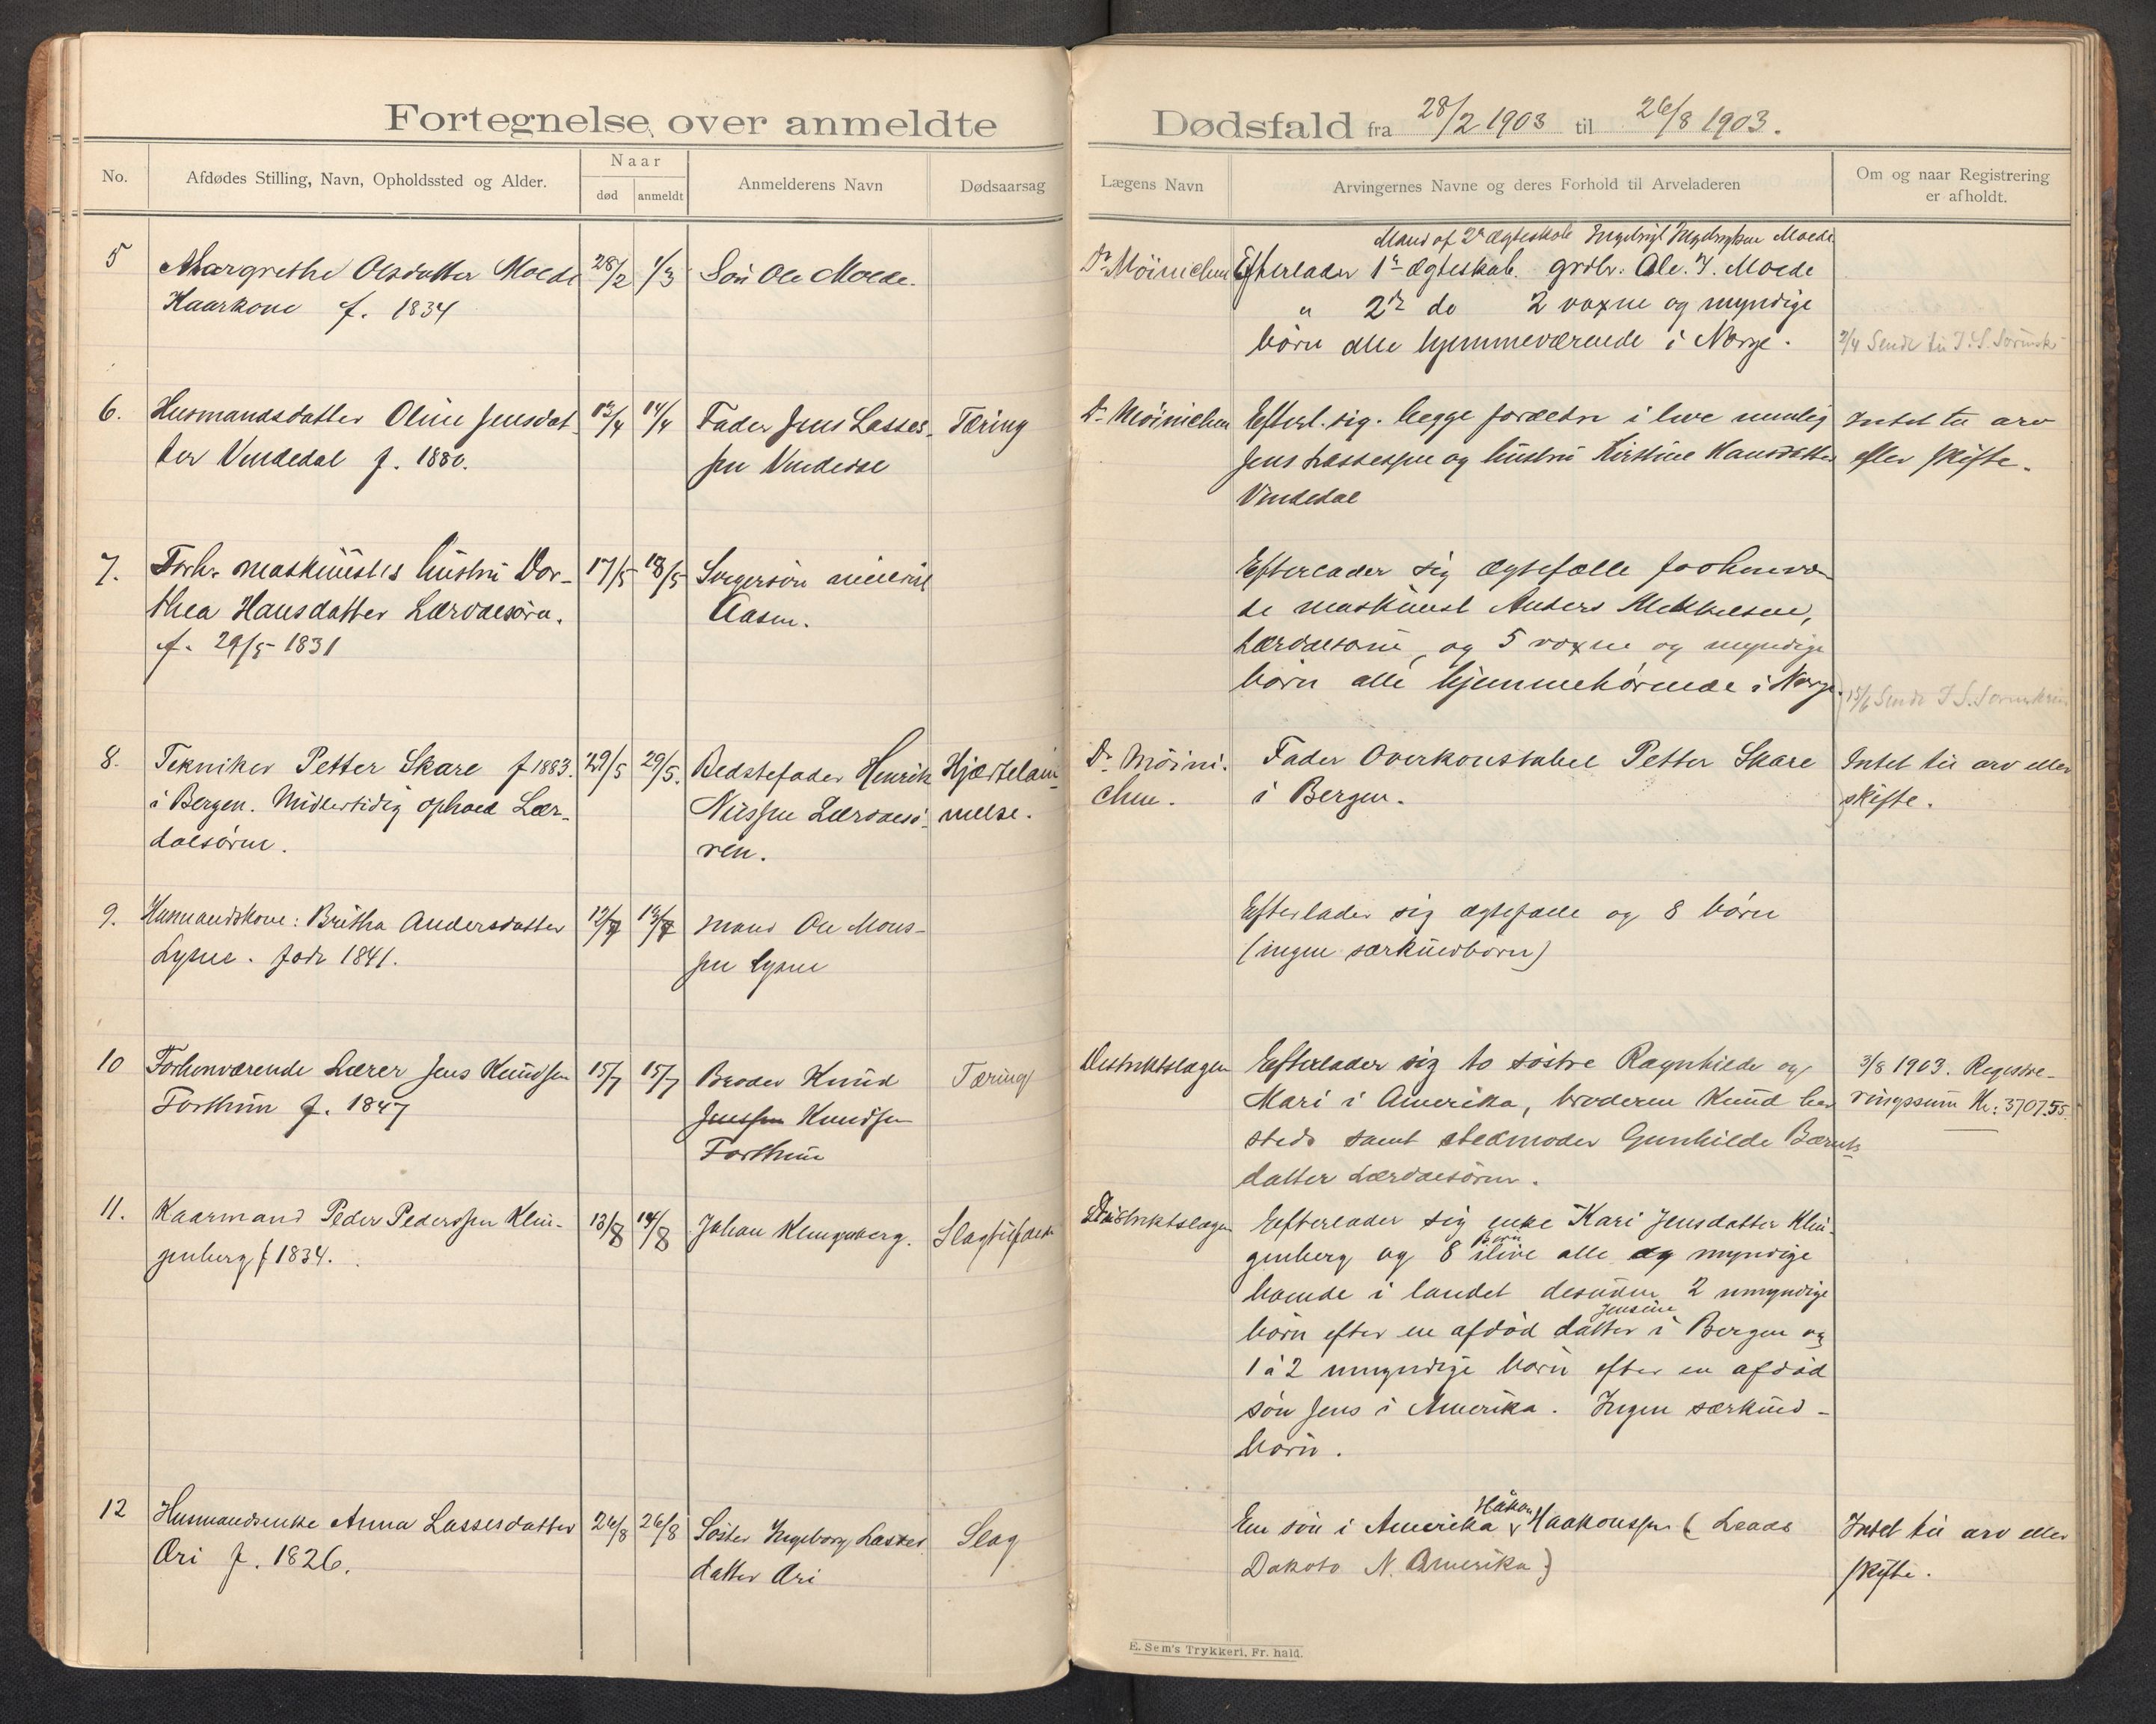 Fortegnelse over anmeldte
No.
Afdødes Stilling, Navn, Opholdssted og Alder.
Naar
død
anmeldt
Anmelderens Navn
Dødsaarsag
5
Margrethe Olsdatter Molde
Kaarkone f. 1834
28/2
1/3
Søn Ole Molde.
6.
Husmandsdatter Oline Jensdat-
ter Vindedal f. 1880.
13/4
14/4
Fader Jens Lasses-
sen Vindedal
Tæring
7.
Forhv maskinists hustru Dor-
thea Hansdatter Lærdalsøren.
f. 29/5 1831
17/5
18/5
Svigersøn
Aasen.
8.
Tekniker Petter Skare f 1883.
i Bergen. Midlertidig ophold Lær-
dalsøren.
29/5
29/5.
Bedstefader Henrik
Nilssen Lærdalsø-
ren.
Hjærtelam-
melse.
9.
Husmandskone: Britha Andersdatter
Lysne. født 1841.
12/7
13/7
mand Ole Mons-
sen Lysne
10
Forhenværende Lærer Jens Knudsen
Forthun f. 1847
15/7
15/7
Broder Knud
Jenssen Knudsen
Forthun
Tæring
11.
Kaarmand Peder Pederssen Klin-
genberg f 1834.
13/8
14/8
Johan Klingenberg.
Slagtilfælde
12
Husmandsenke Anna Lassesdatter
Øri f. 1826.
26/8
26/8
Søster Ingeborg Lasses
datter Øri
Slag
Dødsfald fra 28/2 1903 til 26/8 1903.
Lægens Navn
Arvingernes Navne og deres Forhold til Arveladeren
Om og naar Registrering
er afholdt.
Mand af 2det ægteskab Ingebrigt Ingebrigtsen Molde
Dr Möinichen
Efterlader 1ste ægteskab. grdbr. Ole. I. Molde
" 2det do 2 voxne og myndige
børn alle hjemmeværende i Norge.
2/4 Sendt til
Dr Möinichen
Efterl. sig. begge forældre i live nemlig
Jens Lassessen og hustru Kirstine Hansdatter
Vindedal
Intet til arv
eller skifte.
Efterlader sig ægtefælle forhenvæ-
de maskinist Anders Mikkelsen,
Lærdalsøren, og 5 voxne og myndige
børn alle hjemmehørende i Norge.
15/6 Sendt
Dr Möini-
chen.
Fader Overkonstabel Petter Skare
i Bergen.
Intet til arv eller
skifte.
Efterlader sig ægtefælle og 8 børn
(ingen særkuldbørn)
Distriktslægen
Efterlader sig to søstre Ragnhilde og
Mari i Amerika, broderen Knud her
steds samt stedmoder Gunhilde Bærnts
datter Lærdalsøren.
3/8 1903. Registre-
ringssum Kr: 3707.55.
Distriktslægen
Efterlader sig enke Kari Jensdatter Klin-
genberg og 8 børn ilive alle og myndige
boende i landet desuden 2 umyndige
børn efter en afdød datter Jensine i Bergen og
1 à 2 umyndige børn efter en afdød
søn Jens i Amerika. Ingen særkuld-
børn.
En søn i Amerika Håkon Haakonssen (Leads
Dakota N. Amerika)
Intet til arv eller
skifte.
E. Sem's Trykkeri, Fr. hald.